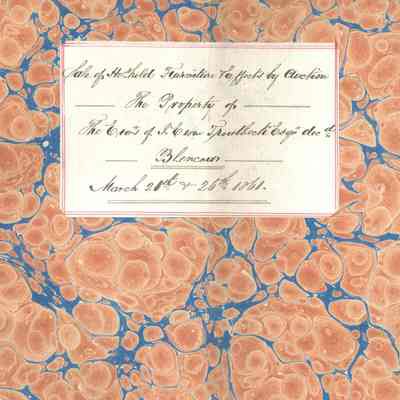 Sale of H.Hold Furniture & Effects by Auction
The Property of
The Exors of Esqr. decd.
Blencow
March 20th & 26th 1861.